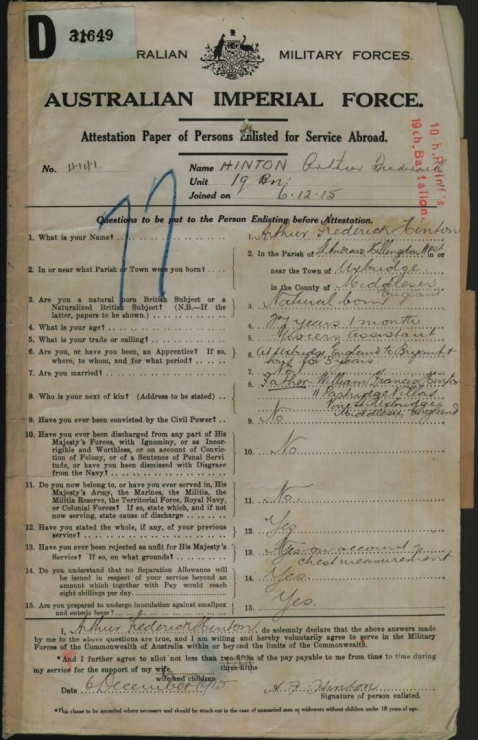 D 31649
AUSTRALIAN MILITARY FORCES.
AUSTRALIAN IMPERIAL FORCE.
Attestation Paper of Persons Enlisted for Service Abroad.
10th Reinf's
19th, Battalion.
No. 4441
Name HINTON Arthur Frederick
Unit 19 Bn:
Joined on 6-12-15
77
Questions to be put to the Person Enlisting before Attestation.
1. What is your Name? 1. Arthur Frederick Hinton
2. In or near what Parish or Town were you born? 2. In the Parish of St Andrews Hillingdon West in or
near the Town of Uxbridge
in the County of Middlesex England
3. Are you a natural born British Subject or a
Naturalized British Subject? (N.B.—If the
latter, papers to be shown.) 3. Natural born
4. What is your age? 4. years 1 month
5. What is your trade or calling? 5. Grocers assistant
6. Are you, or have you been, an Apprentice? If so,
where, to whom, and for what period? 6. At Uxbridge England to
for 3 years
7. Are you married? 7. No
8. Who is your next of kin? (Address to be stated) 8. Father William Francis Hinton
11 Villas
Uxbridge
Middlesex England
9. Have you ever been convicted by the Civil Power? 9. No
10. Have you ever been discharged from any part of His
Majesty's Forces, with Ignominy, or as Incor-
rigible and Worthless, or on account of Convic-
tion of Felony, or of a Sentence of Penal Servi-
tude, or have you been dismissed with Disgrace
from the Navy? 10. No
11. Do you now belong to, or have you ever served in, His
Majesty's Army, the Marines, the Militia, the
Militia Reserve, the Territorial Force, Royal Navy,
or Colonial Forces? If so, state which, and if not
now serving, state cause of discharge 11. No
12. Have you stated the whole, if any, of your previous
service? 12. Yes
13. Have you ever been rejected as unfit for His Majesty's
Service? If so, on what grounds? 13. Yes on account of
chest measurement
14. Do you understand that no Separation Allowance will
be issued in respect of your service beyond an
amount which together with Pay would reach
eight shillings per day 14. Yes.
15. Are you prepared to undergo inoculation against smallpox
and enteric fever? 15. Yes.
I, Arthur Frederick Hinton, do solemnly declare that the above answers made
by me to the above questions are true, and I am willing and hereby voluntarily agree to serve in the Military
Forces of the Commonwealth of Australia within or beyond the limits of the Commonwealth.
*And I further agree to allot not less than two-fifths of the pay payable to me from time to time during
three-fifths
my service for the support of my wife
wife and children
Date 6 December 1915 A. F. Hinton
Signature of person enlisted.
*This clause to be amended where necessary and should be struck out in the case of unmarried men or widowers without children under 18 years of age.